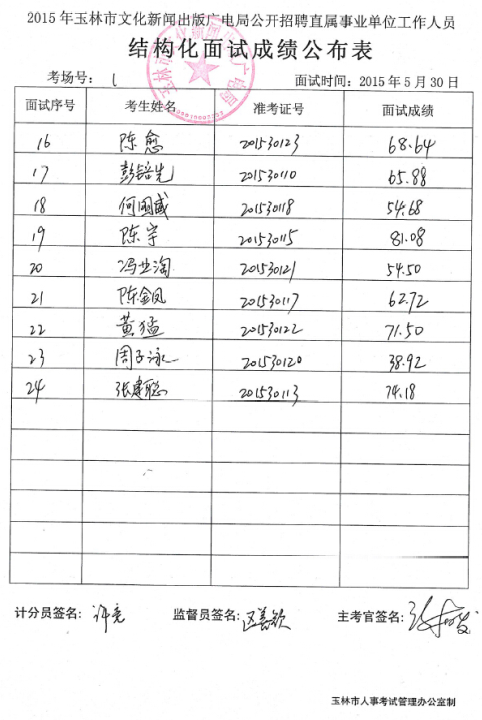 2015年玉林市文化新闻出版广电局公开招聘直属事业单位工作人员
结构化面试成绩公布表
考场号： 1 面试时间：2015年5月30日
面试序号 考生姓名 准考证号 面试成绩
16 陈愈 201530123 68.64
17 彭锫先 201530110 65.88
18 何国威 201530118 54.68
19 陈宇 201530115 81.08
20 冯业淘 201530121 54.50
21 陈金凤 201530117 62.72
22 黄猛 201530122 71.50
23 周子泳 201530120 38.92
24 张建聪 201530113 74.18
计分员签名：许亮 监督员签名：区善钦 主考官签名：
玉林市人事考试管理办公室制